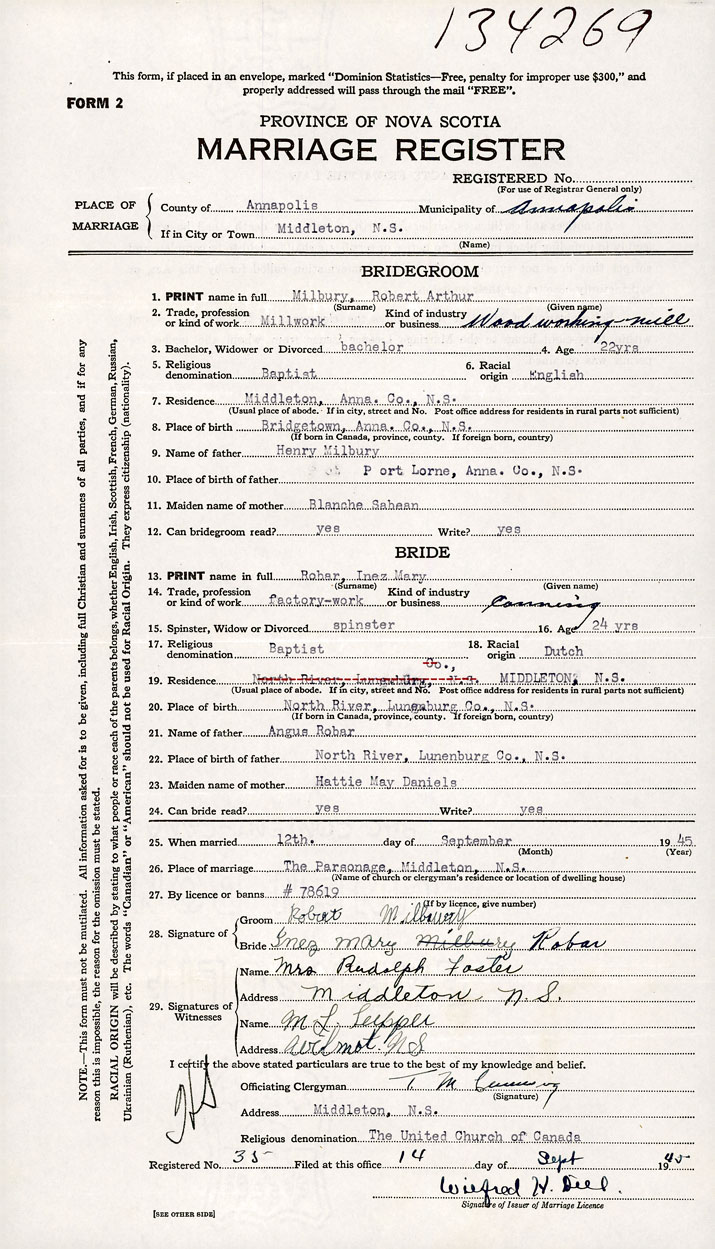 134269
This form, if placed in an envelope, marked “Dominion Statistics—Free, penalty for improper use $300,” and
properly addressed will pass through the mail “FREE”.
FORM 2
PROVINCE OF NOVA SCOTIA
MARRIAGE REGISTER
REGISTERED No.
(For use of Registrar General only)
PLACE OF MARRIAGE
County of Annapolis Municipality of Annapolis
If in City or Town Middleton, N.S.
(Name)
BRIDEGROOM
1. PRINT name in full Milbury, Robert Arthur
(Surname) (Given name)
2. Trade, profession or kind of work Millwork Kind of industry or business Wood working mill
3. Bachelor, Widower or Divorced bachelor 4. Age 22yrs
5. Religious denomination Baptist 6. Racial origin English
7. Residence Middleton, Anna. Co., N.S.
(Usual place of abode. If in city, street and No. Post office address for residents in rural parts not sufficient)
8. Place of birth Bridgetown, Anna. Co., N.S.
(If born in Canada, province, county. If foreign born, country)
9. Name of father Henry Milbury
10. Place of birth of father Port Lorne, Anna. Co., N.S.
11. Maiden name of mother Blanche Sabean
12. Can bridegroom read? yes Write? yes
BRIDE
13. PRINT name in full Robar, Inez Mary
(Surname) (Given name)
14. Trade, profession or kind of work factory-work Kind of industry or business Canning
15. Spinster, Widow or Divorced spinster 16. Age 24 yrs
17. Religious denomination Baptist 18. Racial origin Dutch
Co.,
19. Residence North River, Lunenburg, N.S. MIDDLETON, N.S.
(Usual place of abode. If in city, street and No. Post office address for residents in rural parts not sufficient)
20. Place of birth North River, Lunenburg Co., N.S.
(If born in Canada, province, county. If foreign born, country)
21. Name of father Angus Robar
22. Place of birth of father North River, Lunenburg Co., N.S.
23. Maiden name of mother Hattie May Daniels
24. Can bride read? yes Write? yes
25. When married 12th. day of September 1945
(Month) (Year)
26. Place of marriage The Parsonage, Middleton, N.S.
(Name of church or clergyman's residence or location of dwelling house)
27. By licence or banns # 78619
(If by licence, give number)
28. Signature of
Groom Robert Milbury
Bride Inez Mary Milbury Robar
29. Signatures of Witnesses
Name Mrs Rudolph Foster
Address Middleton, N.S.
Name M L
Address N S
I certify the above stated particulars are true to the best of my knowledge and belief.
Officiating Clergyman T. M.
(Signature)
Address Middleton, N.S.
Religious denomination The United Church of Canada
Registered No. 35 Filed at this office 14 day of Sept 1945
Wilfred H. Deel.
Signature of Issuer of Marriage Licence
[SEE OTHER SIDE]
NOTE.—This form must not be mutilated. All information asked for is to be given, including full Christian and surnames of all parties, and if for any
reason this is impossible, the reason for the omission must be stated.
RACIAL ORIGIN will be described by stating to what people or race each of the parents belongs, whether English, Irish, Scottish, French, German, Russian,
Ukrainian (Ruthenian), etc. The words “Canadian” or “American” should not be used for Racial Origin. They express citizenship (nationality).